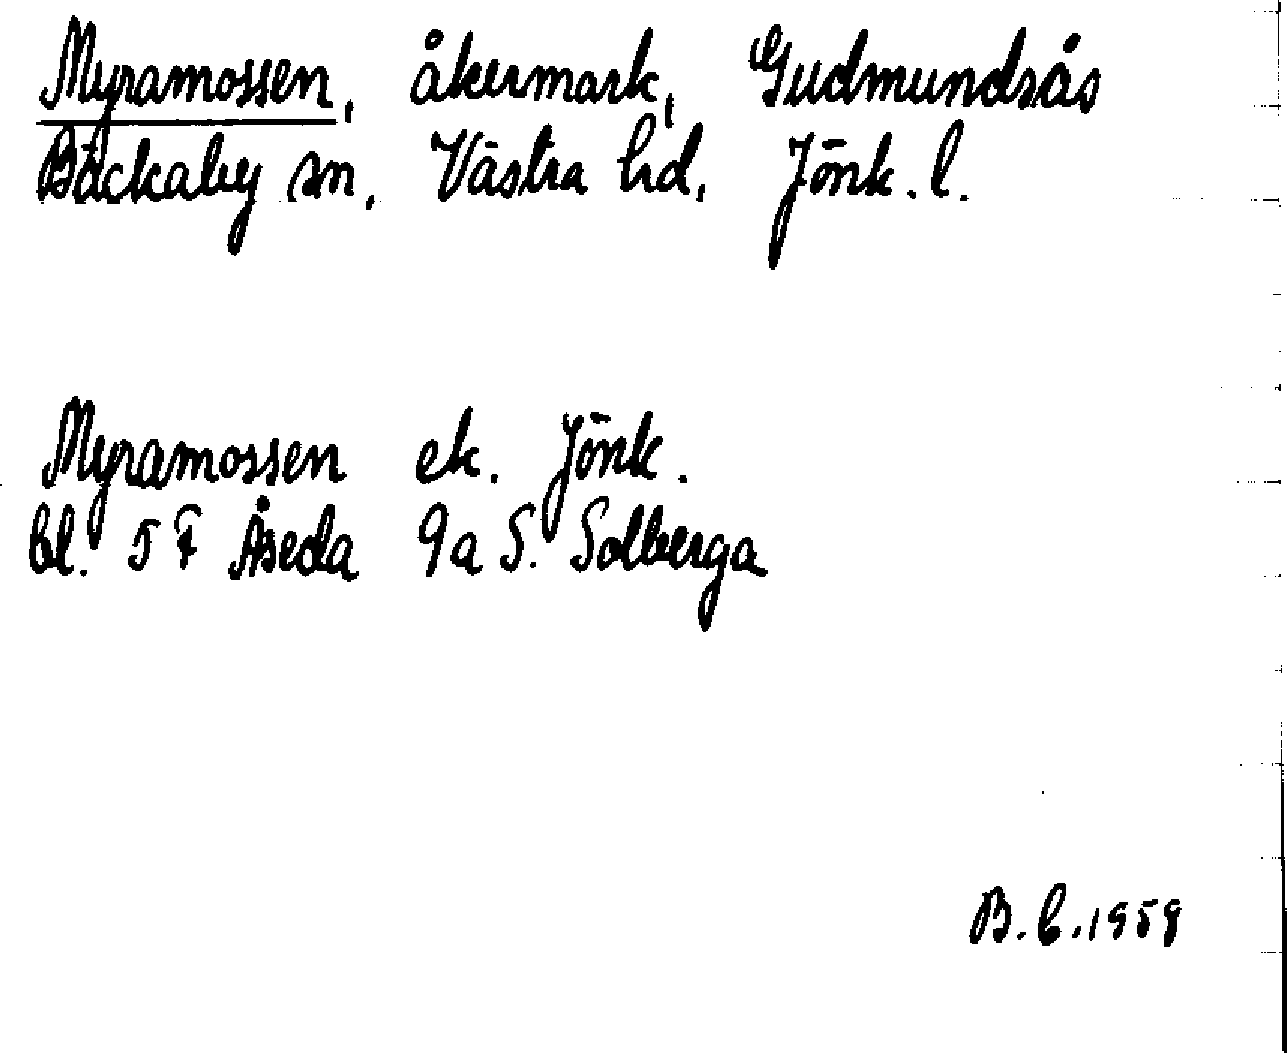 Myramossen, åkermark, Gudmundsås
Bäckaby sn, Västra hd, Jönk. l.
Myramossen ek. Jönk.
bl. 5 F Åseda 9a S. Solberga
B.C.1959